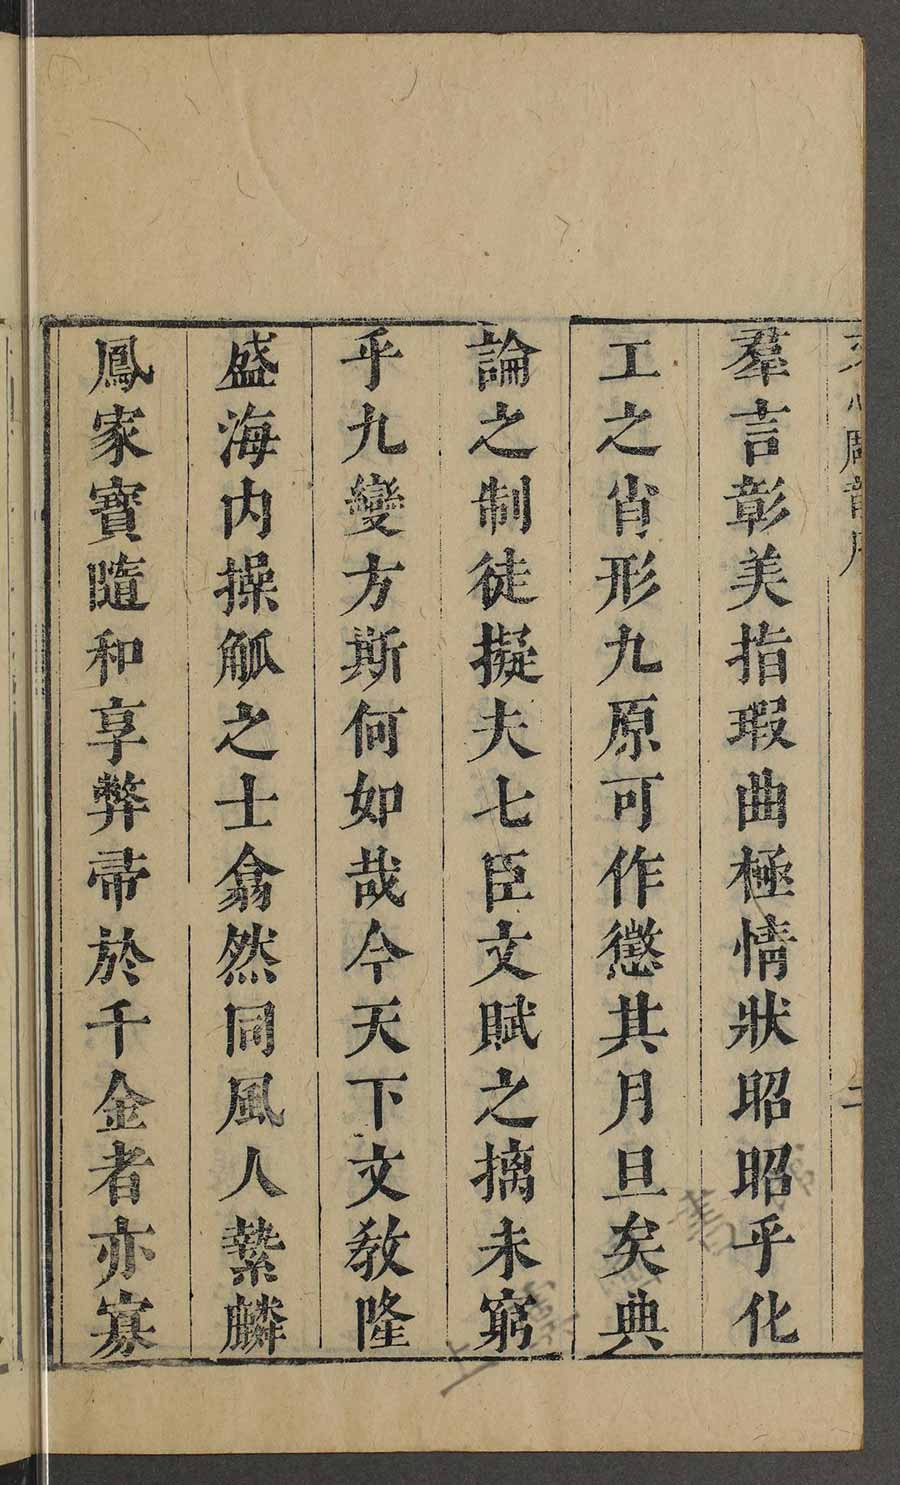 文心雕龍序
二
羣言彰美指瑕曲極情狀昭昭乎化
工之肖形九原可作懲其月旦矣典
論之制徒擬夫七臣文賦之摛未窮
乎九變方斯何如哉今天下文教隆
盛海内操觚之士翕然同風人縶麟
鳳家寶隨和享弊帚於千金者亦寡